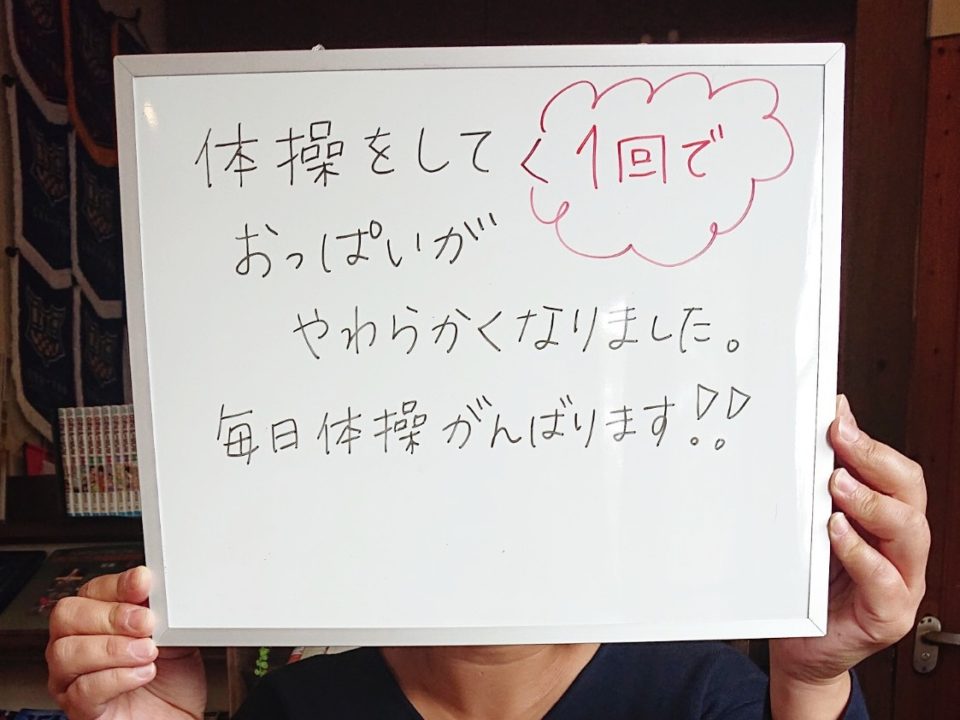 体操をして
1回で
おっぱいが
やわらかくなりました。
毎日体操がんばります!!